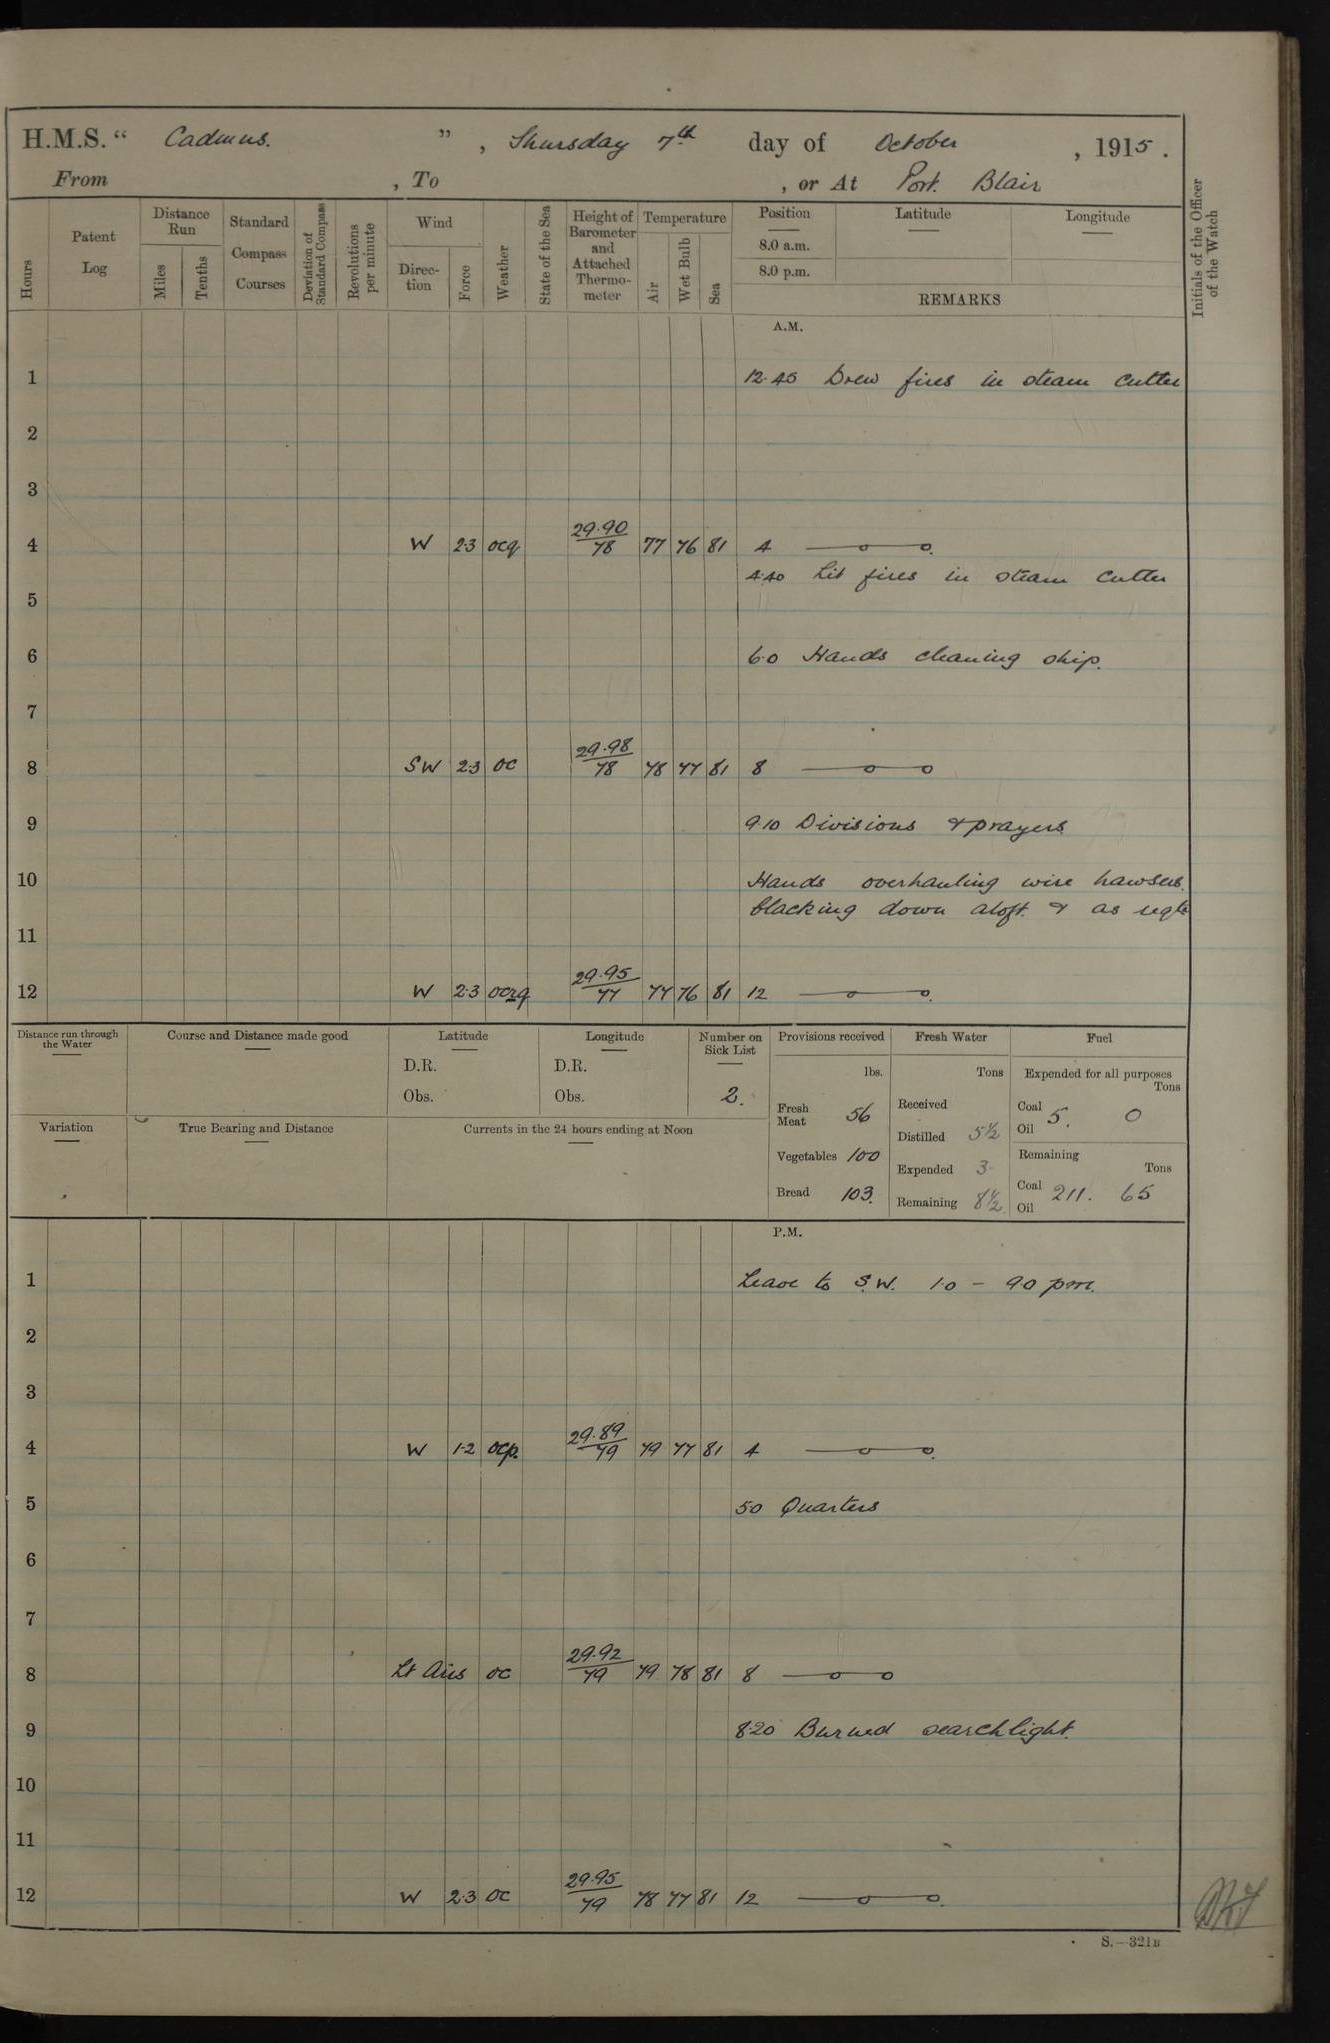 H.M.S. " Cadmus. ", Thursday 7th day of October, 1915.
From , To , or At Port Blair
Hours
Patent Log
Distance Run
Miles
Tenths
Standard Compass Courses
Deviation of Standard Compass
Revolutions per minute
Wind
Direction
Force
Weather
State of the Sea
Height of Barometer and Attached Thermometer
Temperature
Air
Wet Bulb
Sea
Position
8.0 a.m.
8.0 p.m.
Latitude
Longitude
REMARKS
Initials of the Officer of the Watch
A.M.
1 12.45 Drew fires in steam cutter
2
3
4 W 2.3 ocq 29.90 78 77 76 81 4 —o—o.
4.40 Lit fires in steam cutter
5
6 6.0 Hands cleaning ship.
7
8 SW 2.3 oc 29.98 78 78 77 81 8 —o—o
9 9.10 Divisions & prayers
10 Hands overhauling wire hawsers.
blacking down aloft. & as reqte
11
12 W 2.3 ocrq 29.95 77 77 76 81 12 —o—o.
Distance run through the Water
Course and Distance made good
Latitude
D.R.
Obs.
Longitude
D.R.
Obs.
Number on Sick List
2.
Provisions received
lbs.
Fresh Meat 56
Vegetables 100
Bread 103.
Fresh Water
Tons
Received
Distilled 5½
Expended 3
Remaining 8½
Fuel
Expended for all purposes
Tons
Coal 5. 0
Oil
Remaining
Tons
Coal 211. 65
Oil
Variation
True Bearing and Distance
Currents in the 24 hours ending at Noon
P.M.
1 Leave to S.W. 1.0 - 9.0 pm.
2
3
4 W 1.2 ocp. 29.89 79 79 77 81 4 —o—o.
5 5.0 Quarters
6
7
8 Lt Airs oc 29.92 79 79 78 81 8 —o—o
9 8.20 Burned searchlight.
10
11
12 W 2.3 oc 29.95 79 78 77 81 12 —o—o.
S.—321B